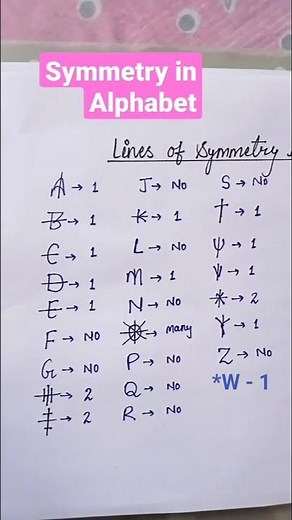 Symmetry in
Alphabet
Lines of Symmetry
A → 1
B → 1
C → 1
D → 1
E → 1
F → No
G → No
H → 2
I → 2
J → No
K → 1
L → No
M → 1
N → No
O → many
P → No
Q → No
R → No
S → No
T → 1
U → 1
V → 1
X → 2
Y → 1
Z → No
*W - 1